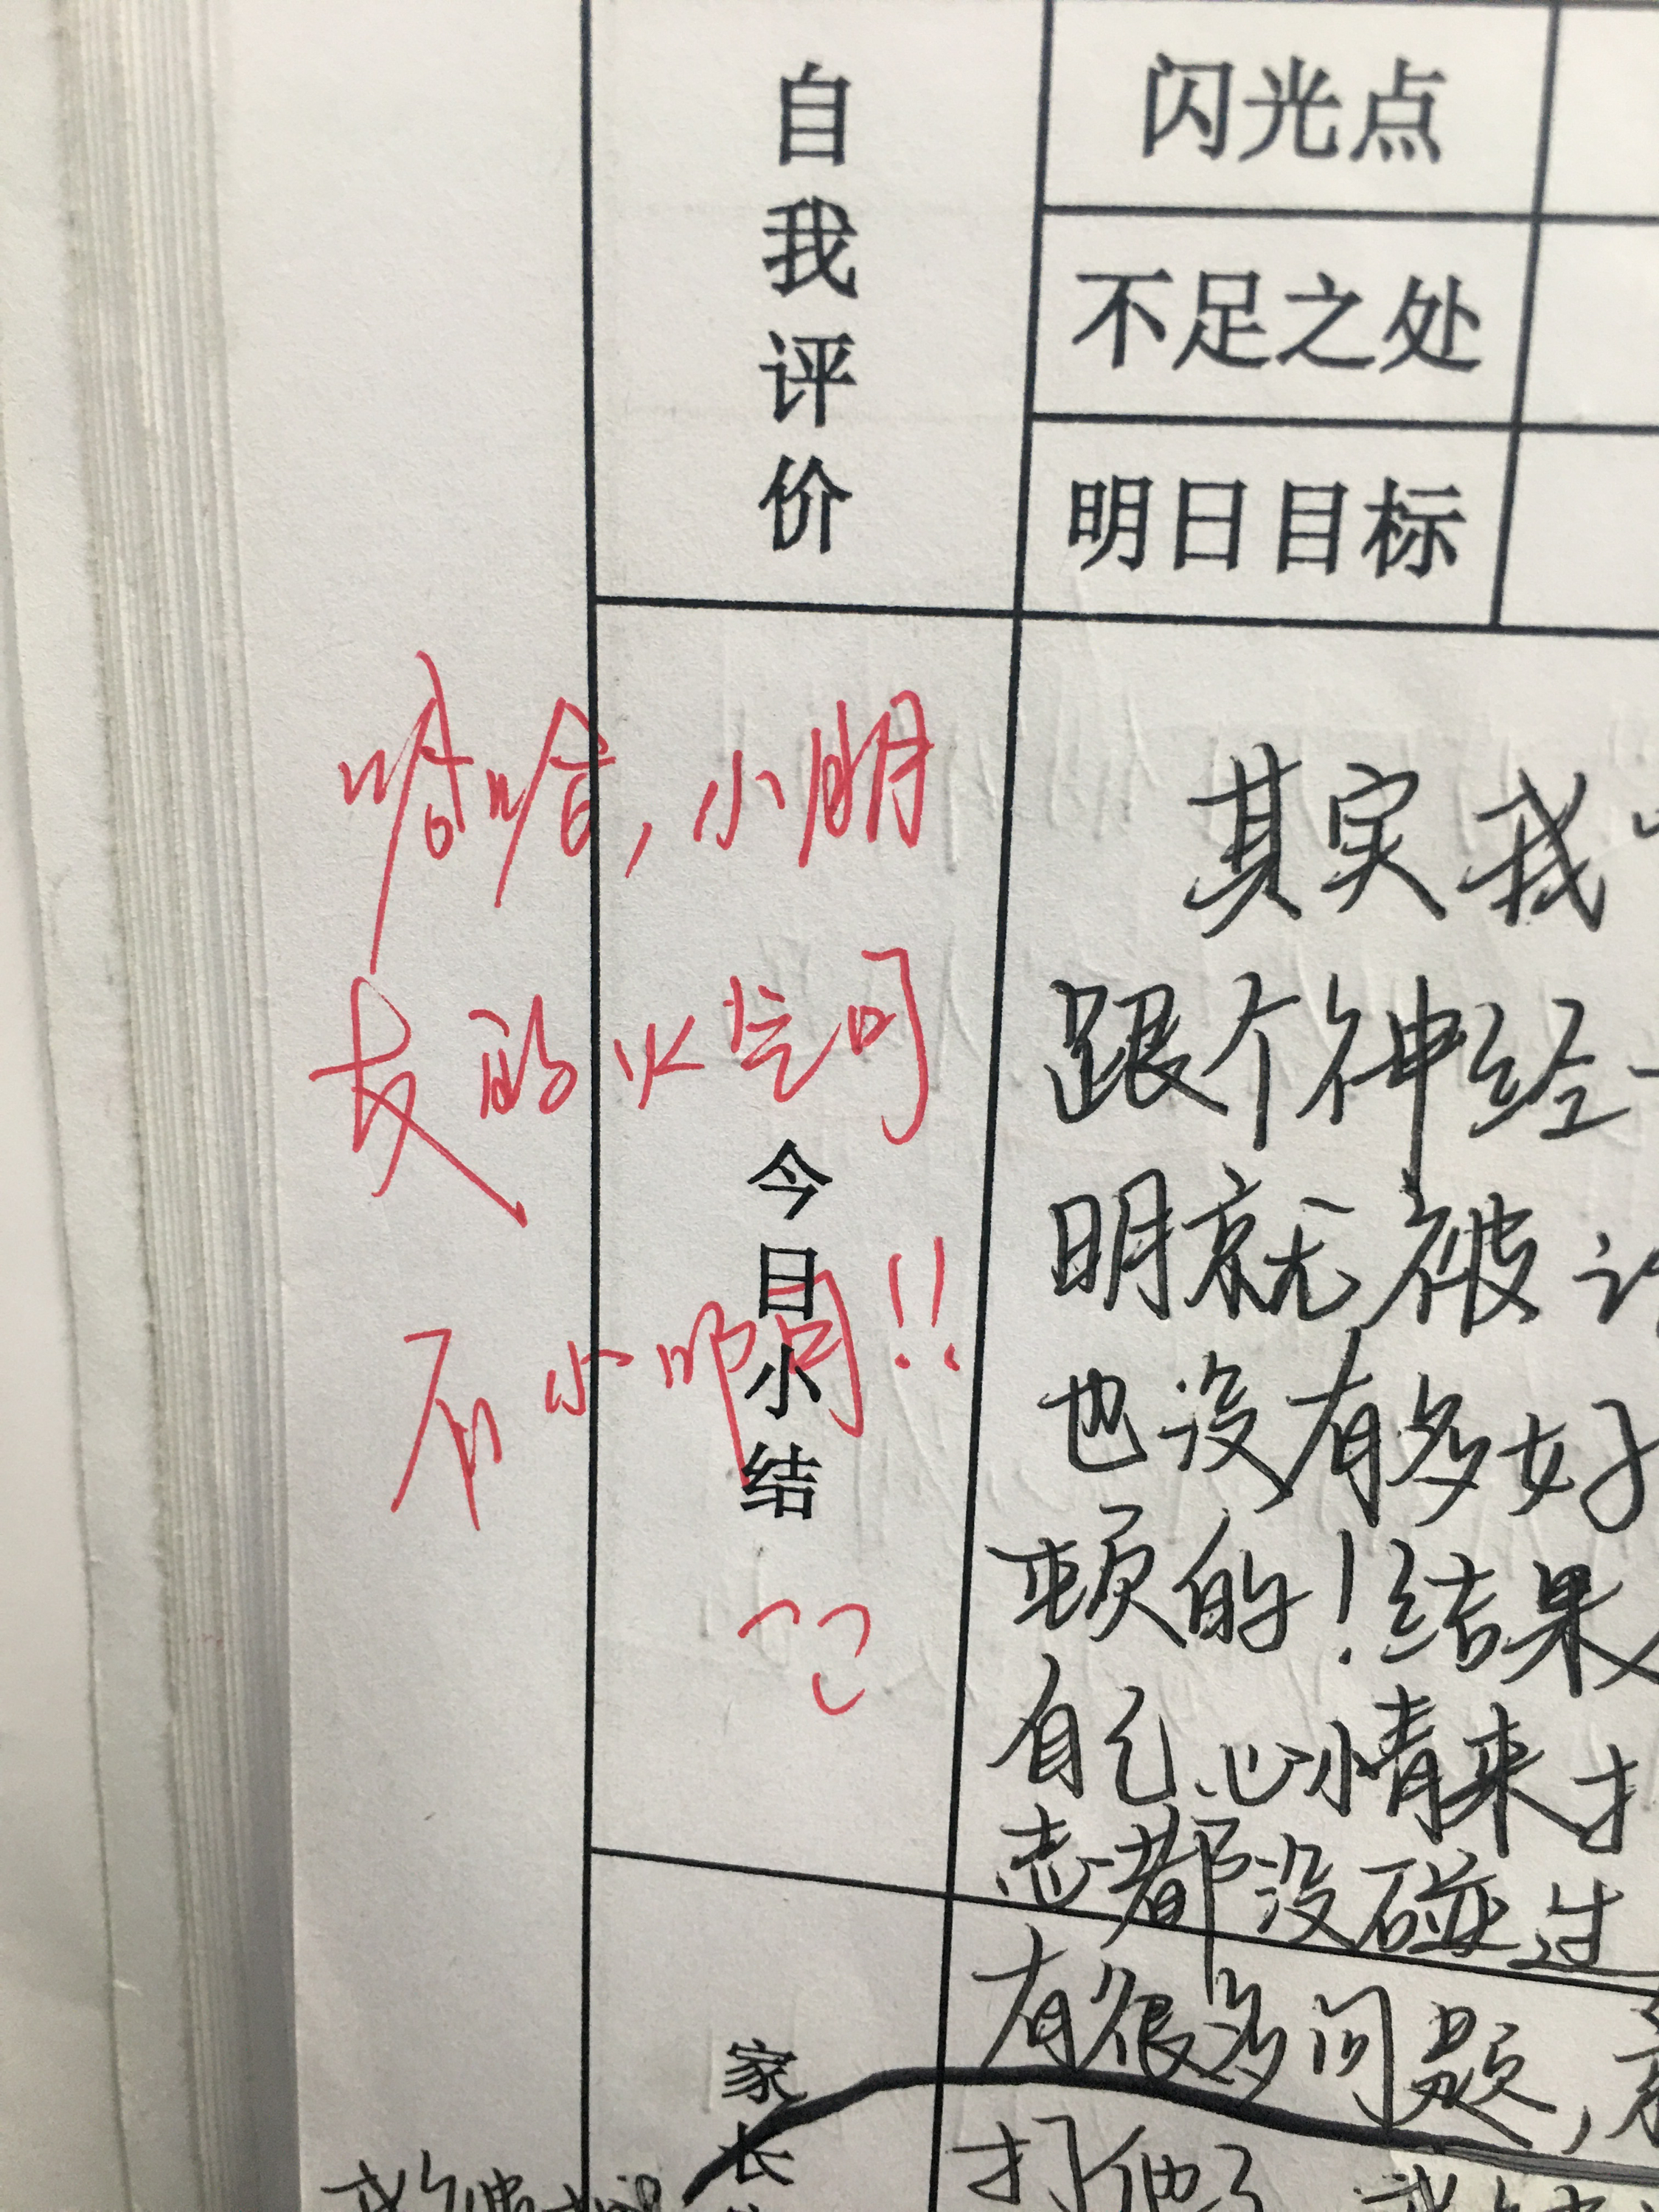 自我评价
闪光点
不足之处
明日目标
哈哈,小朋
友的火气可
不小哟!!
今日小结
其实我
跟个神经
明就被
也没有多好
顿的!结果
自己心情来
志都没碰过
有很多问题,
打他了
家长